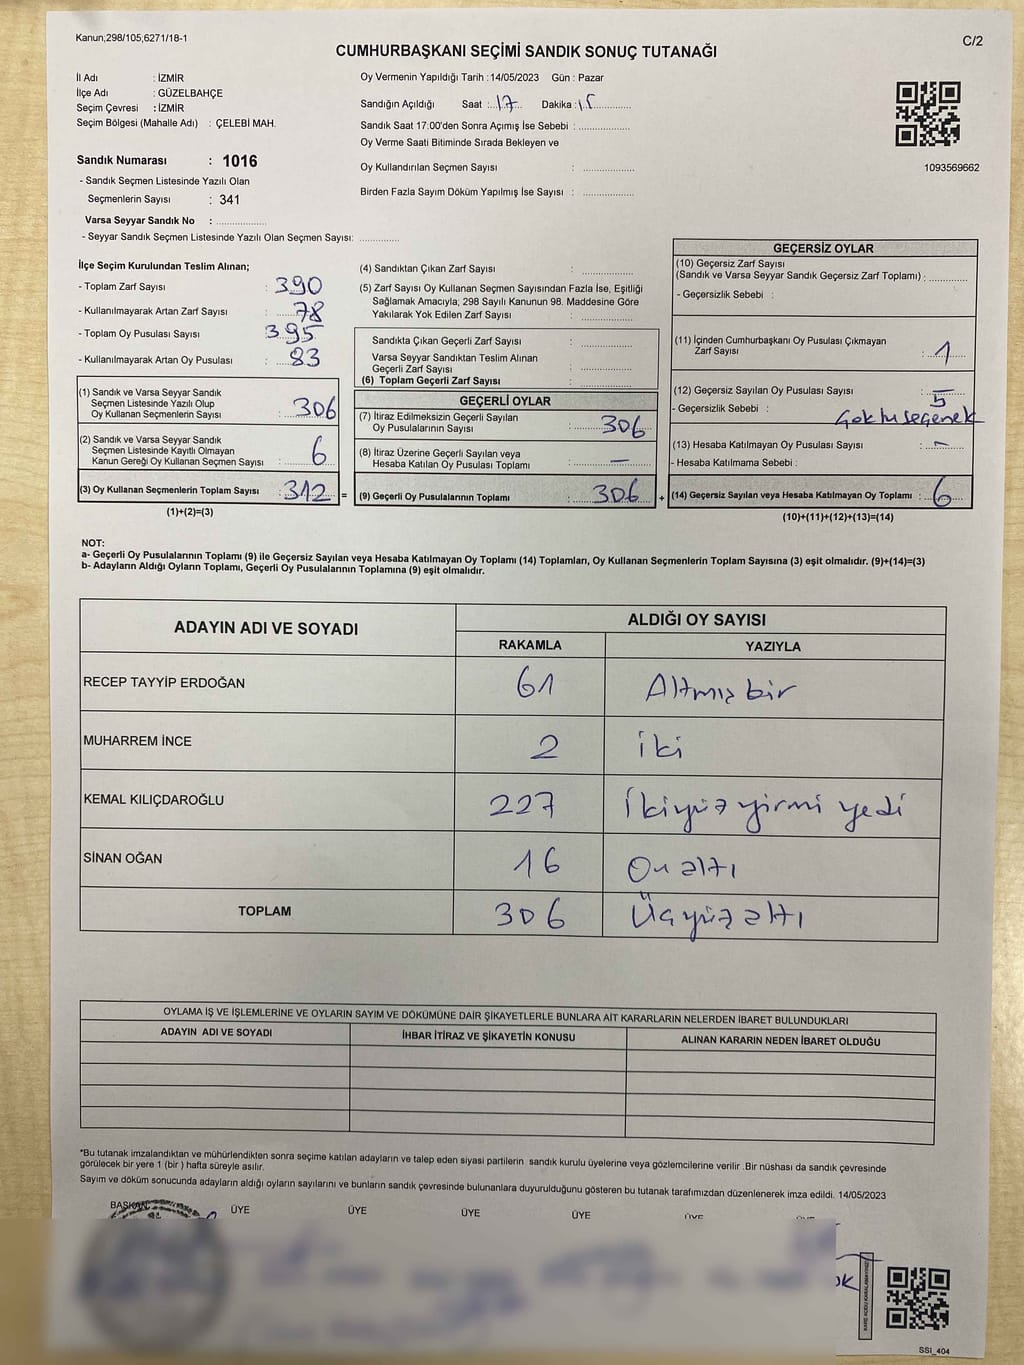 Kanun;298/105;6271/18-1
C/2
CUMHURBAŞKANI SEÇİMİ SANDIK SONUÇ TUTANAĞI
İl Adı : İZMİR
İlçe Adı : GÜZELBAHÇE
Seçim Çevresi : İZMİR
Seçim Bölgesi (Mahalle Adı) : ÇELEBİ MAH.
Sandık Numarası : 1016
- Sandık Seçmen Listesinde Yazılı Olan
Seçmenlerin Sayısı : 341
Varsa Seyyar Sandık No : ..................
- Seyyar Sandık Seçmen Listesinde Yazılı Olan Seçmen Sayısı: .............
Oy Vermenin Yapıldığı Tarih : 14/05/2023 Gün : Pazar
Sandığın Açıldığı Saat : 17 Dakika : 15
Sandık Saat 17:00'den Sonra Açımış İse Sebebi : ..................
Oy Verme Saati Bitiminde Sırada Bekleyen ve
Oy Kullandırılan Seçmen Sayısı : ..................
Birden Fazla Sayım Döküm Yapılmış İse Sayısı : ..................
1093569662
İlçe Seçim Kurulundan Teslim Alınan;
- Toplam Zarf Sayısı : 390
- Kullanılmayarak Artan Zarf Sayısı : 78
- Toplam Oy Pusulası Sayısı : 395
- Kullanılmayarak Artan Oy Pusulası : 83
(1) Sandık ve Varsa Seyyar Sandık
Seçmen Listesinde Yazılı Olup
Oy Kullanan Seçmenlerin Sayısı : 306
(2) Sandık ve Varsa Seyyar Sandık
Seçmen Listesinde Kayıtlı Olmayan
Kanun Gereği Oy Kullanan Seçmen Sayısı : 6
(3) Oy Kullanan Seçmenlerin Toplam Sayısı : 312 =
(1)+(2)=(3)
(4) Sandıktan Çıkan Zarf Sayısı : ..................
(5) Zarf Sayısı Oy Kullanan Seçmen Sayısından Fazla İse, Eşitliği
Sağlamak Amacıyla; 298 Sayılı Kanunun 98. Maddesine Göre
Yakılarak Yok Edilen Zarf Sayısı : ..................
Sandıkta Çıkan Geçerli Zarf Sayısı : ..................
Varsa Seyyar Sandıktan Teslim Alınan
Geçerli Zarf Sayısı : ..................
(6) Toplam Geçerli Zarf Sayısı : ..................
GEÇERLİ OYLAR
(7) İtiraz Edilmeksizin Geçerli Sayılan
Oy Pusulalarının Sayısı : 306
(8) İtiraz Üzerine Geçerli Sayılan veya
Hesaba Katılan Oy Pusulası Toplamı : –
(9) Geçerli Oy Pusulalarının Toplamı : 306 +
GEÇERSİZ OYLAR
(10) Geçersiz Zarf Sayısı
(Sandık ve Varsa Seyyar Sandık Geçersiz Zarf Toplamı) : .............
- Geçersizlik Sebebi :
(11) İçinden Cumhurbaşkanı Oy Pusulası Çıkmayan
Zarf Sayısı : 1
(12) Geçersiz Sayılan Oy Pusulası Sayısı : 5
- Geçersizlik Sebebi :
(13) Hesaba Katılmayan Oy Pusulası Sayısı : –
- Hesaba Katılmama Sebebi :
(14) Geçersiz Sayılan veya Hesaba Katılmayan Oy Toplamı : 6
(10)+(11)+(12)+(13)=(14)
NOT:
a- Geçerli Oy Pusulalarının Toplamı (9) ile Geçersiz Sayılan veya Hesaba Katılmayan Oy Toplamı (14) Toplamları, Oy Kullanan Seçmenlerin Toplam Sayısına (3) eşit olmalıdır. (9)+(14)=(3)
b- Adayların Aldığı Oyların Toplamı, Geçerli Oy Pusulalarının Toplamına (9) eşit olmalıdır.
ADAYIN ADI VE SOYADI
ALDIĞI OY SAYISI
RAKAMLA YAZIYLA
RECEP TAYYİP ERDOĞAN 61 Altmış bir
MUHARREM İNCE 2 iki
KEMAL KILIÇDAROĞLU 227 İkiyüz yirmi yedi
SİNAN OĞAN 16 On altı
TOPLAM 306 Üçyüz altı
OYLAMA İŞ VE İŞLEMLERİNE VE OYLARIN SAYIM VE DÖKÜMÜNE DAİR ŞİKAYETLERLE BUNLARA AİT KARARLARIN NELERDEN İBARET BULUNDUKLARI
ADAYIN ADI VE SOYADI İHBAR İTİRAZ VE ŞİKAYETİN KONUSU ALINAN KARARIN NEDEN İBARET OLDUĞU
*Bu tutanak imzalandıktan ve mühürlendikten sonra seçime katılan adayların ve talep eden siyasi partilerin sandık kurulu üyelerine veya gözlemcilerine verilir .Bir nüshası da sandık çevresinde
görülecek bir yere 1 (bir ) hafta süreyle asılır.
Sayım ve döküm sonucunda adayların aldığı oyların sayılarını ve bunların sandık çevresinde bulunanlara duyurulduğunu gösteren bu tutanak tarafımızdan düzenlenerek imza edildi. 14/05/2023
BAŞKAN ÜYE ÜYE ÜYE ÜYE
SSI_404